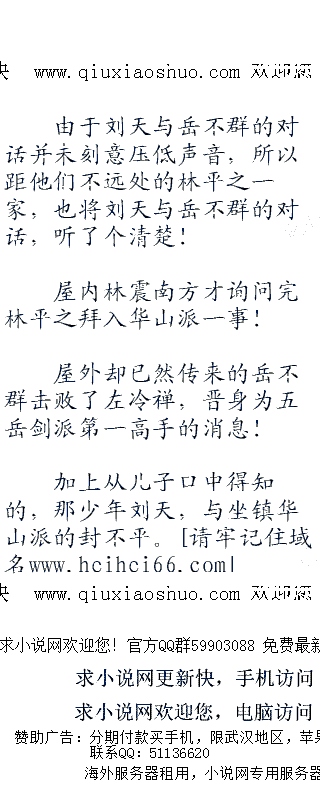 快  www.qiuxiaoshuo.com 欢迎您
由于刘天与岳不群的对
话并未刻意压低声音，所以
距他们不远处的林平之一
家，也将刘天与岳不群的对
话，听了个清楚！
屋内林震南方才询问完
林平之拜入华山派一事！
屋外却已然传来的岳不
群击败了左冷禅，晋身为五
岳剑派第一高手的消息！
加上从儿子口中得知
的，那少年刘天，与坐镇华
山派的封不平。[请牢记住域
名www.hcihci66.com|
快  www.qiuxiaoshuo.com 欢迎您
求小说网欢迎您！官方QQ群59903088 免费最新
求小说网更新快，手机访问
求小说网欢迎您，电脑访问
赞助广告：分期付款买手机，限武汉地区，苹果
联系QQ：51136620
海外服务器租用，小说网专用服务器